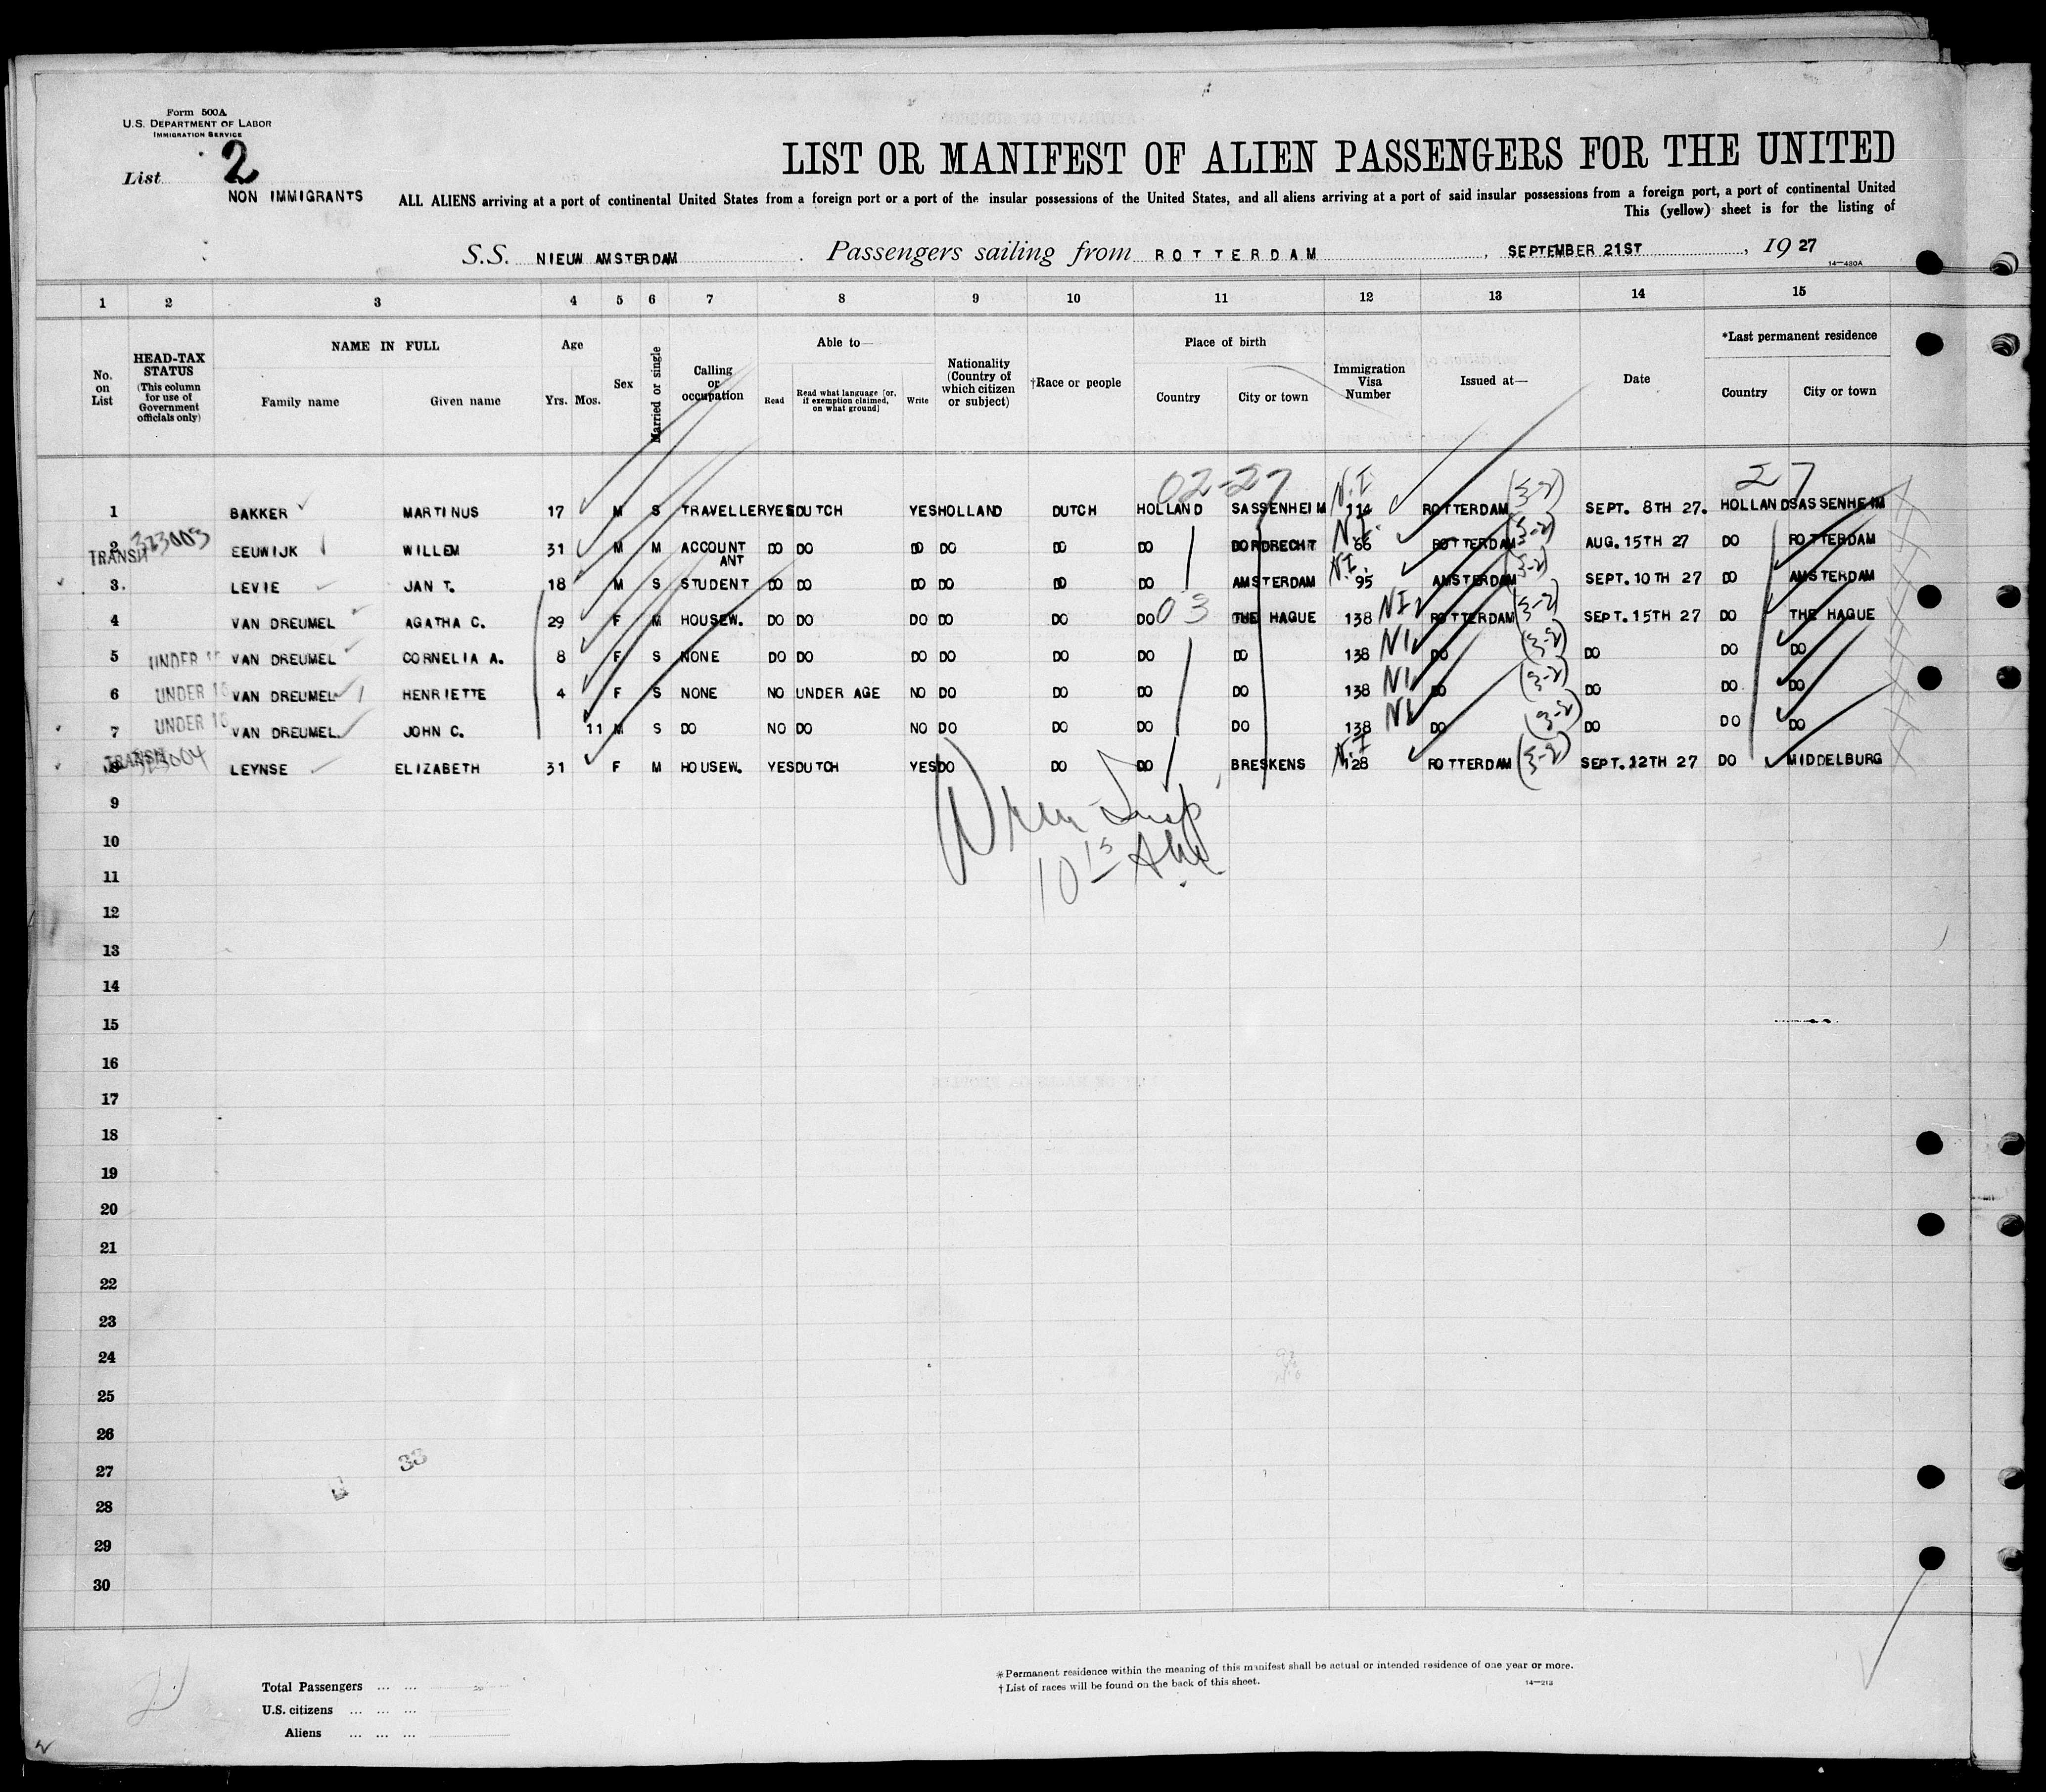 Form 500A
U.S. DEPARTMENT OF LABOR
IMMIGRATION SERVICE
List 2
NON IMMIGRANTS
LIST OR MANIFEST OF ALIEN PASSENGERS FOR THE UNITED
ALL ALIENS arriving at a port of continental United States from a foreign port or a port of the insular possessions of the United States, and all aliens arriving at a port of said insular possessions from a foreign port, a port of continental United
This (yellow) sheet is for the listing of
S.S. NIEUW AMSTERDAM Passengers sailing from ROTTERDAM, SEPTEMBER 21ST, 19 27
14—480A
1 2 3 4 5 6 7 8 9 10 11 12 13 14 15
No. on List
HEAD-TAX STATUS (This column for use of Government officials only)
NAME IN FULL
Family name Given name
Age
Yrs. Mos.
Sex
Married or single
Calling or occupation
Able to—
Read Read what language [or, if exemption claimed, on what ground] Write
Nationality (Country of which citizen or subject)
†Race or people
Place of birth
Country City or town
Immigration Visa Number
Issued at—
Date
*Last permanent residence
Country City or town
02-27 27
1 BAKKER MARTINUS 17 M S TRAVELLER YES DUTCH YES HOLLAND DUTCH HOLLAND SASSENHEIM N.I 114 ROTTERDAM (3-2) SEPT. 8TH 27. HOLLAND SASSENHEIM
2 TRANSIT 323003 EEUWIJK WILLEM 31 M M ACCOUNTANT DO DO DO DO DO DO DORDRECHT N.I. 66 ROTTERDAM (3-2) AUG. 15TH 27 DO ROTTERDAM
3 LEVIE JAN T. 18 M S STUDENT DO DO DO DO DO DO AMSTERDAM N.I. 95 AMSTERDAM (3-2) SEPT. 10TH 27 DO AMSTERDAM
4 VAN DREUMEL AGATHA C. 29 F M HOUSEW. DO DO DO DO DO DO 03 THE HAGUE 138 NI ROTTERDAM (3-2) SEPT. 15TH 27 DO THE HAGUE
5 UNDER 16 VAN DREUMEL CORNELIA A. 8 F S NONE DO DO DO DO DO DO DO 138 NI DO (3-2) DO DO DO
6 UNDER 16 VAN DREUMEL HENRIETTE 4 F S NONE NO UNDER AGE NO DO DO DO DO 138 NI DO (3-2) DO DO DO
7 UNDER 16 VAN DREUMEL JOHN C. 11 M S DO NO DO NO DO DO DO DO 138 NI DO (3-2) DO DO DO
8 TRANSIT 323004 LEYNSE ELIZABETH 31 F M HOUSEW. YES DUTCH YES DO DO DO BRESKENS N.I 128 ROTTERDAM (3-2) SEPT. 12TH 27 DO MIDDELBURG
9
10
11
12
13
14
15
16
17
18
19
20
21
22
23
24
25
26
27
28
29
30
33
Total Passengers
U.S. citizens
Aliens
*Permanent residence within the meaning of this manifest shall be actual or intended residence of one year or more.
†List of races will be found on the back of this sheet.
14—213